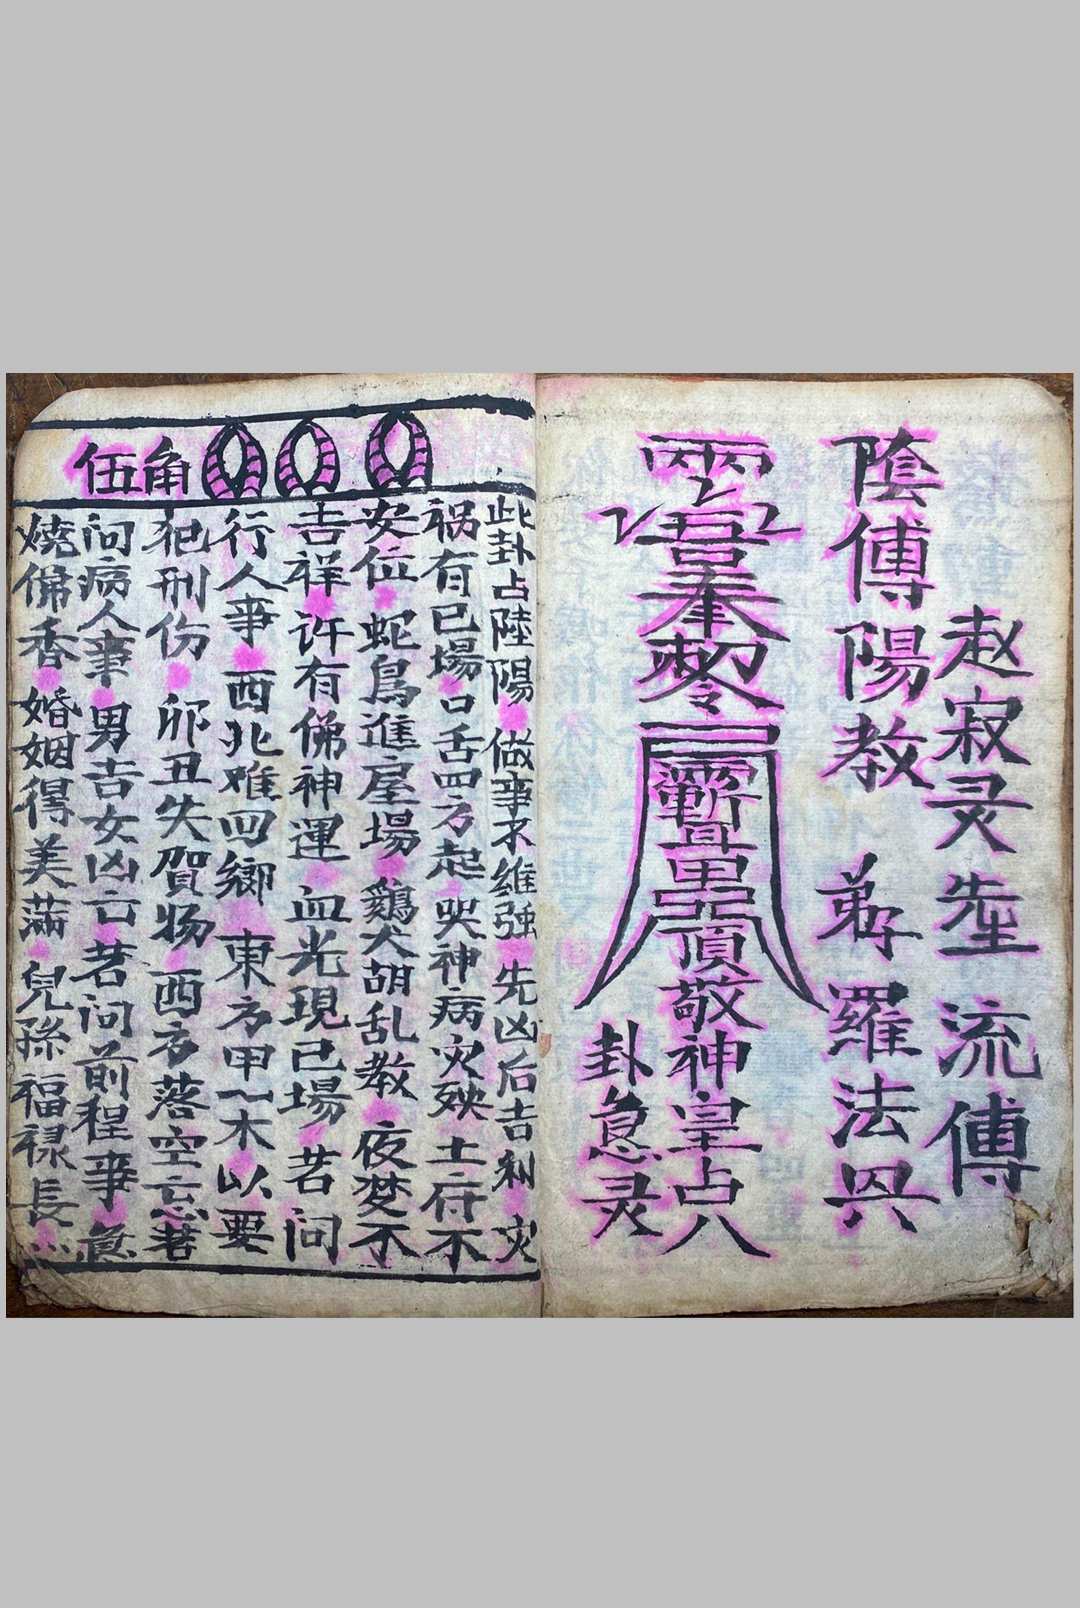 赵寂灵先型流傅
陰傅陽教 弟孖羅法㒷
吾奉
敬神皇占八
卦急灵
角伍
此卦占陸陽做事不維強先凶后吉利灾
祸有已場口舌四方起哭神病灾殃土府不
安位蛇鳥進屋場鷄犬胡乱教夜梦不
吉祥许有佛神運血光現己場若问
行人事酉北难回鄉東方甲一木以要
犯刑伤卯丑失賀物西方落空亡若
问病人事男吉女凶言若问前程事急
燒佛香婚姻得美满兒孫福禄長